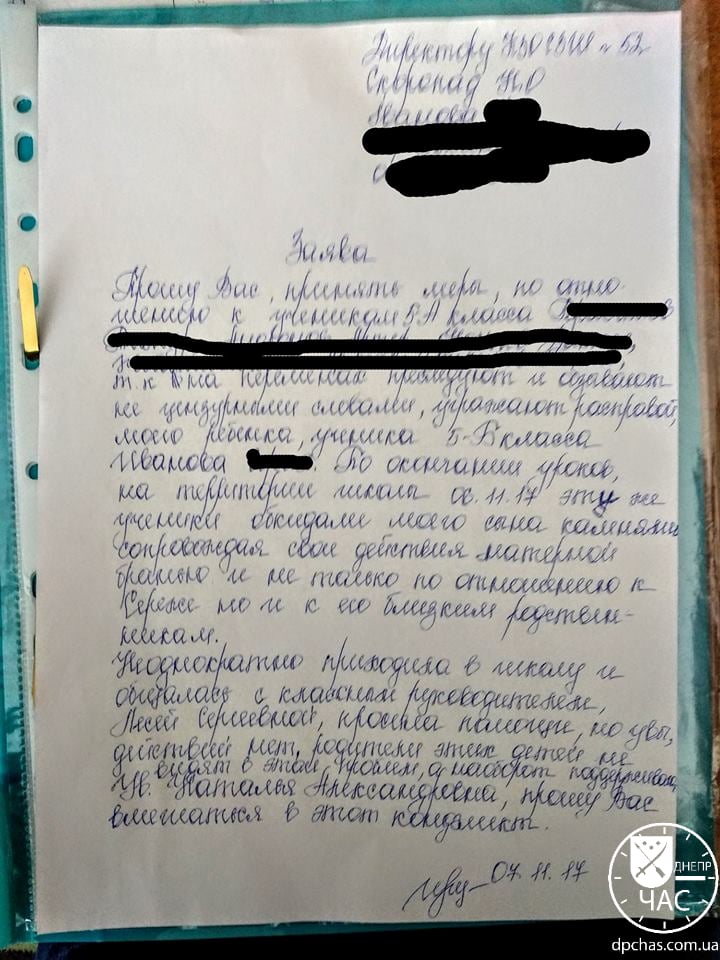 Директору КЗОСШ № 52
Скоропад Н.О
Иванова
Заява
Прошу Вас, принять меры, по отно-
шению к ученикам 5-А класса
т.к на переменах преследуют и обзывают
не цензурными словами, угражают расправой,
моего ребёнка, ученика 5-В класса
Иванова По окончании уроков,
на территории школы 06.11.17 эти же
ученики обкидали моего сына камнями
сопровождая свои действия матерной
бранью и не только по отношению к
Сереже но и к его близким родствен-
никам.
Неоднократно приходила в школу и
общалась с классным руководителем,
Лесей Сергеевной, просила помощи, но увы,
действий нет, родители этих детей не
видят в этом проблем, а наоборот поддерживают
Ув. Наталья Александровна, прошу Вас
вмешаться в этот конфликт.
07.11.17
ДНЕПР
ЧАС
dpchas.com.ua